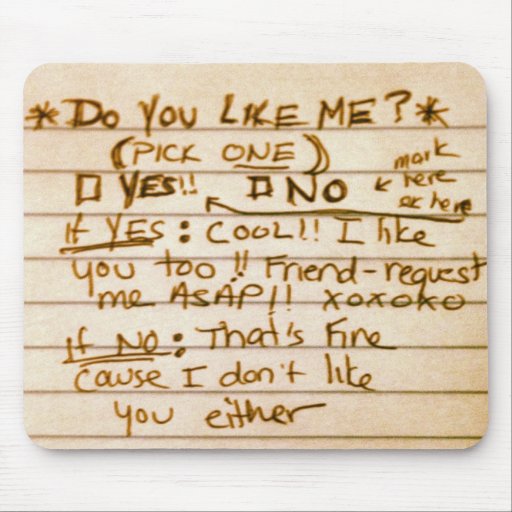 *DO YOU LIKE ME?*
(PICK ONE)
☐ YES!! ☐ NO
mark
here
or here
If YES: COOL!! I like
you too!! Friend-request
me ASAP!! xoxoxo
If NO: That's Fine
cause I don't like
you either